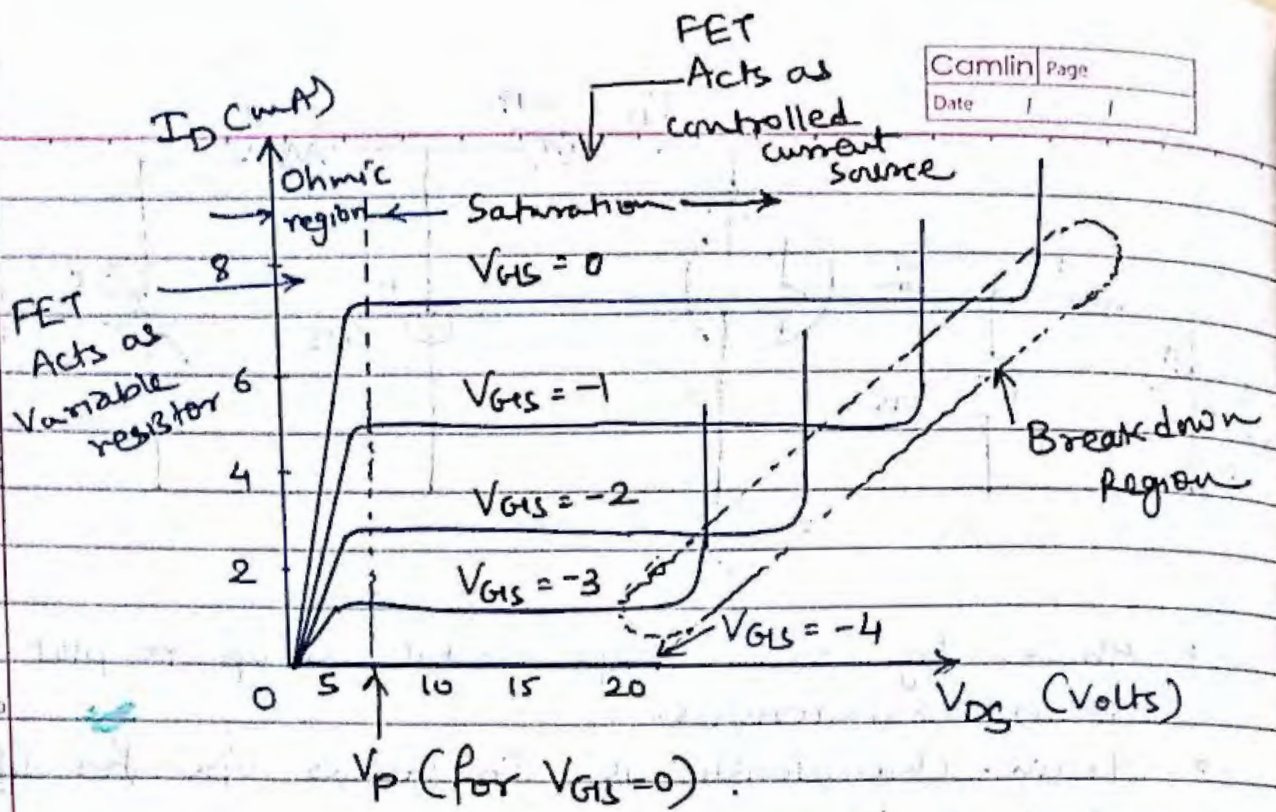 FET
Acts as
controlled
current
source
Camlin Page
Date / /
I_D (mA)
Ohmic
region
Saturation
FET
Acts as
Variable
resistor
8
6
4
2
0
V_GS = 0
V_GS = -1
V_GS = -2
V_GS = -3
V_GS = -4
Breakdown
Region
5 10 15 20
V_DS (Volts)
V_P (for V_GS=0).